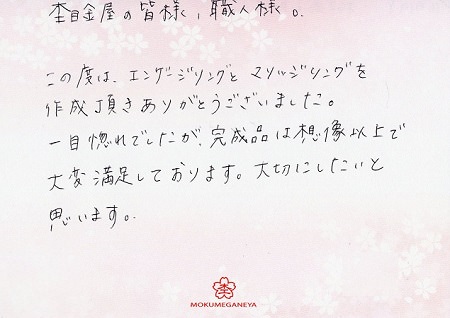 杢目金屋の皆様、職人様。
この度は、エンゲージリングとマリッジリングを
作成頂きありがとうございました。
一目惚れでしたが、完成品は想像以上で
大変満足しております。大切にしたいと
思います。
MOKUMEGANEYA